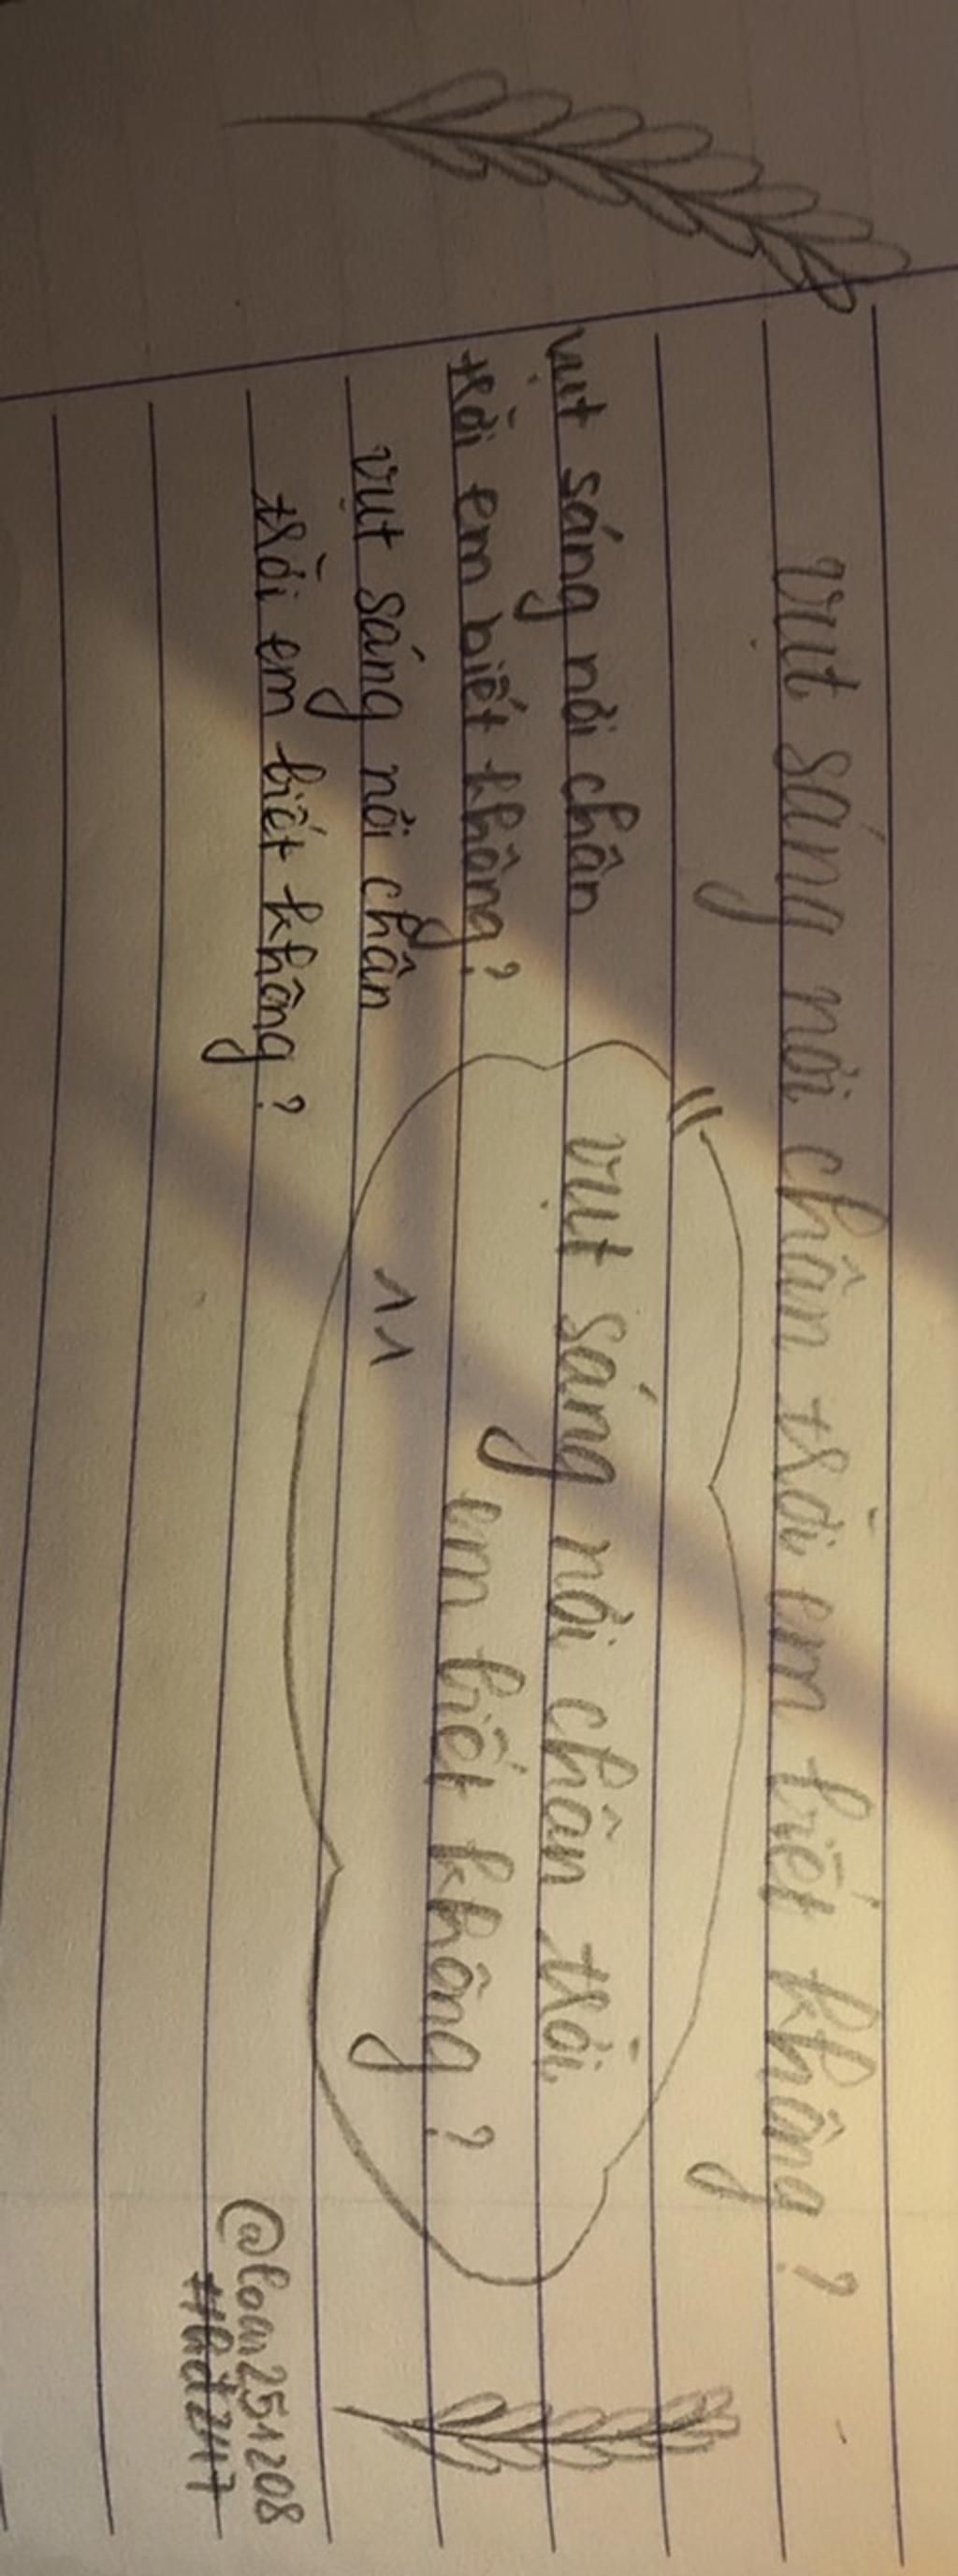 vụt sáng nơi chân trời em biết không?
vụt sáng nơi chân
trời em biết không?
vụt sáng nơi chân
trời em biết không?
" vụt sáng nơi chân trời
em biết không?
@loan251208